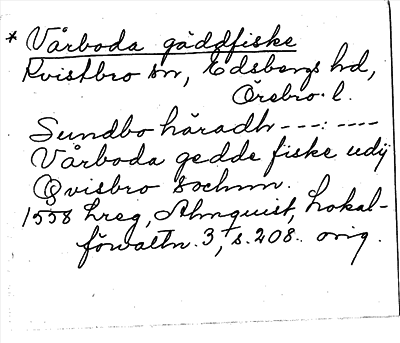 * Vårboda gäddfiske
Kvistbro sn, Edsbergs hd,
Örebro l.
Sundbo häradh ---:----
Vårboda gedde fiske udij
Qvisbro sochnn.
1558 Lreg, Almquist, Lokal-
förvaltn. 3, s. 208. orig.